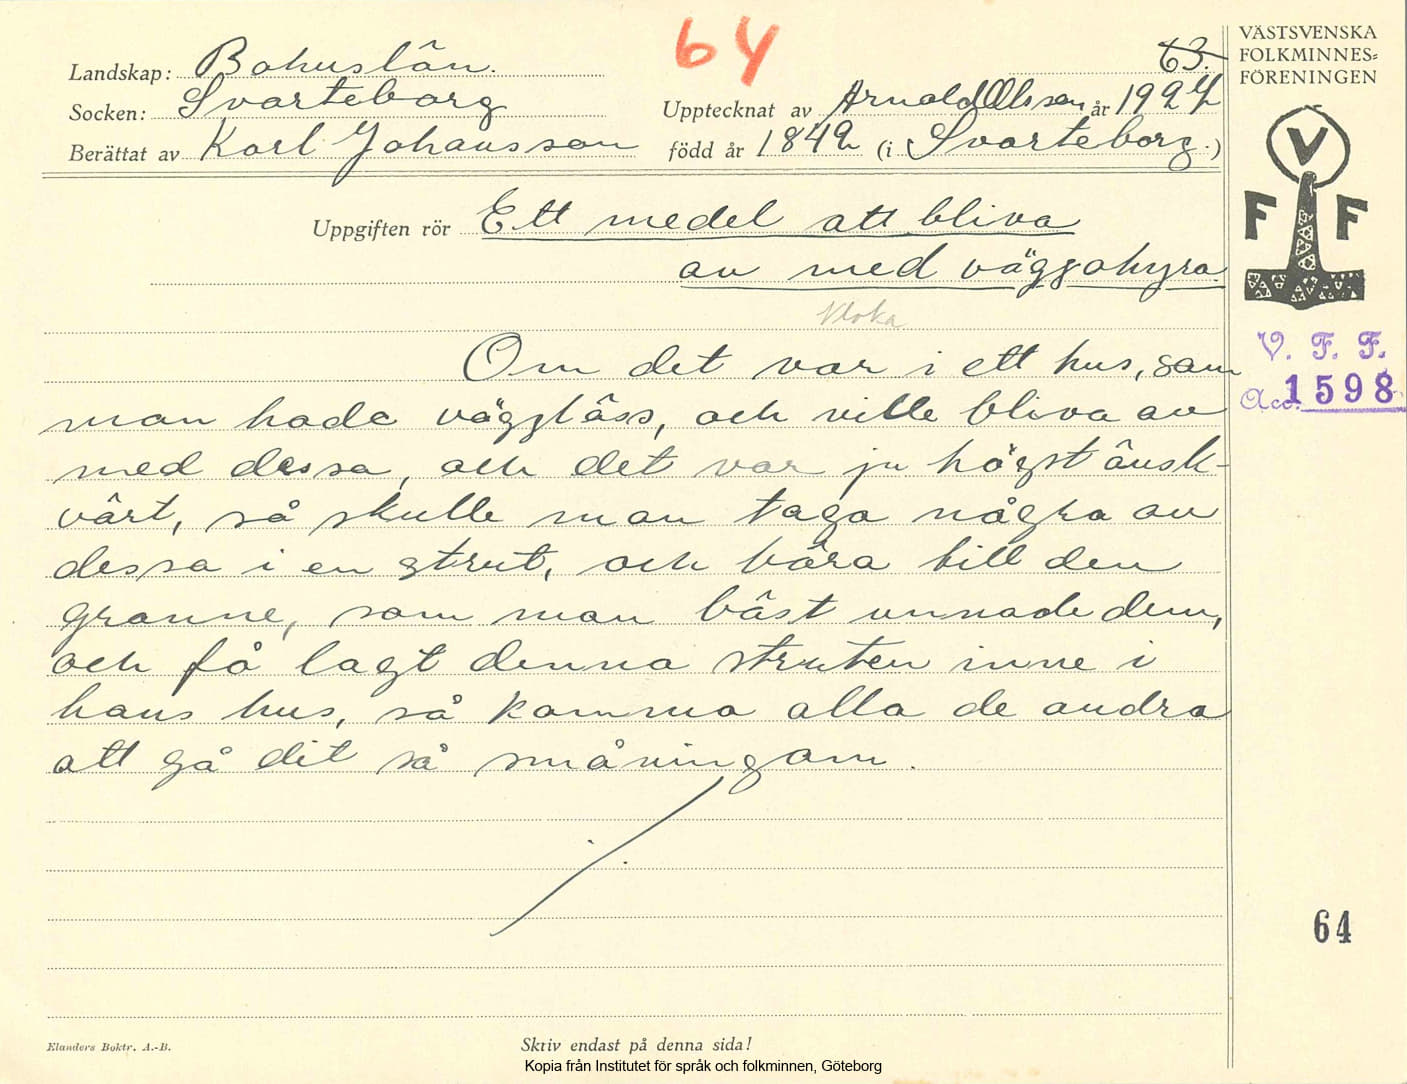 64
63.
VÄSTSVENSKA
FOLKMINNES=
FÖRENINGEN
Landskap: Bohuslän.
Socken: Svarteborg
Upptecknat av Arnold Olsson år 1927
Berättat av Karl Johansson
född år 1842 (i Svarteborg.)
V
F F
Uppgiften rör Ett medel att bliva
av med väggohyra
Kloka
V. F. F.
Acc. 1598
Om det var i ett hus, som
man hade vägglöss, och ville bliva av
med dessa, och det var ju högst önsk-
värt, så skulle man taga några av
dessa i en strut, och bära till den
granne, som man bäst unnade dem,
och få lagt denna struten inne i
hans hus, så komma alla de andra
att gå dit så småningom.
64
Elanders Boktr. A.-B.
Skriv endast på denna sida!
Kopia från Institutet för språk och folkminnen, Göteborg